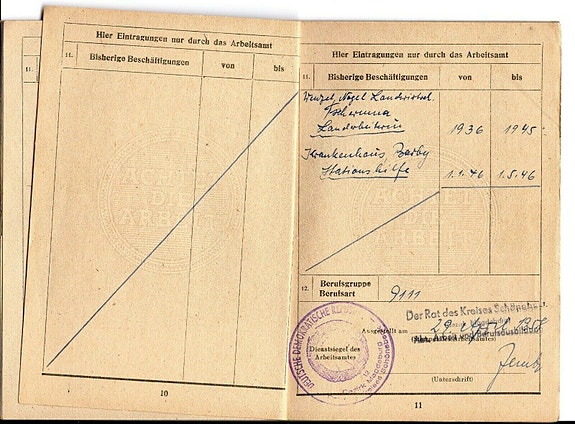 Hier Eintragungen nur durch das Arbeitsamt
11. Bisherige Beschäftigungen von bis
ACHTET
DIE
ARBEIT
10
Hier Eintragungen nur durch das Arbeitsamt
11. Bisherige Beschäftigungen von bis
Wenzel, Nagel Landwirtsch.
Landarbeiterin 1936 1945
Krankenhaus, Barby
Stationshilfe 1.1.46 1.5.46
ACHTET
DIE
ARBEIT
12. Berufsgruppe
Berufsart 9111
Der Rat des Kreises Schönebeck
Ausgestellt am 29. April 1958
Abt. Arbeit und Berufsausbildung
DEUTSCHE DEMOKRATISCHE
Bezirk Magdeburg
12
Dienstsiegel des
Arbeitsamtes
(Unterschrift)
11